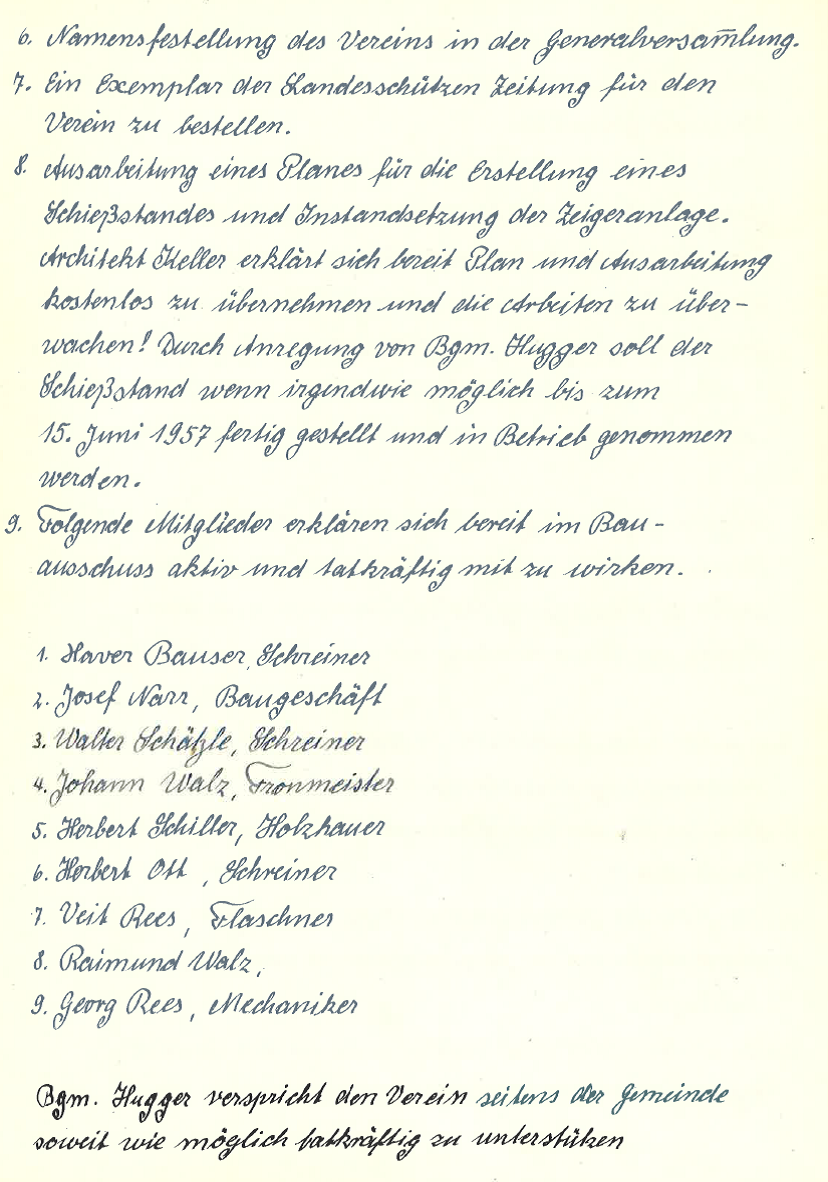 6. Namensfestellung des Vereins in der Generalversam̅lung.
7. Ein Exemplar der Landesschützen Zeitung für den
Verein zu bestellen.
8. Ausarbeitung eines Planes für die Erstellung eines
Schießstandes und Instandsetzung der Zeigeranlage.
Architekt Keller erklärt sich bereit Plan und Ausarbeitung
kostenlos zu übernehmen und die Arbeiten zu über-
wachen! Durch Anregung von Bgm. Hugger soll der
Schießstand wenn irgendwie möglich bis zum
15. Juni 1957 fertig gestellt und in Betrieb genommen
werden.
9. Folgende Mitglieder erklären sich bereit im Bau-
ausschuss aktiv und tatkräftig mit zu wirken.
1. Xaver Bauser, Schreiner
2. Josef Narr, Baugeschäft
3. Walter Schätzle, Schreiner
4. Johann Walz, Fronmeister
5. Herbert Schiller, Holzhauer
6. Herbert Ott, Schreiner
7. Veit Rees, Flaschner
8. Raimund Walz,
9. Georg Rees, Mechaniker
Bgm. Hugger verspricht den Verein seitens der Gemeinde
soweit wie möglich tatkräftig zu unterstützen